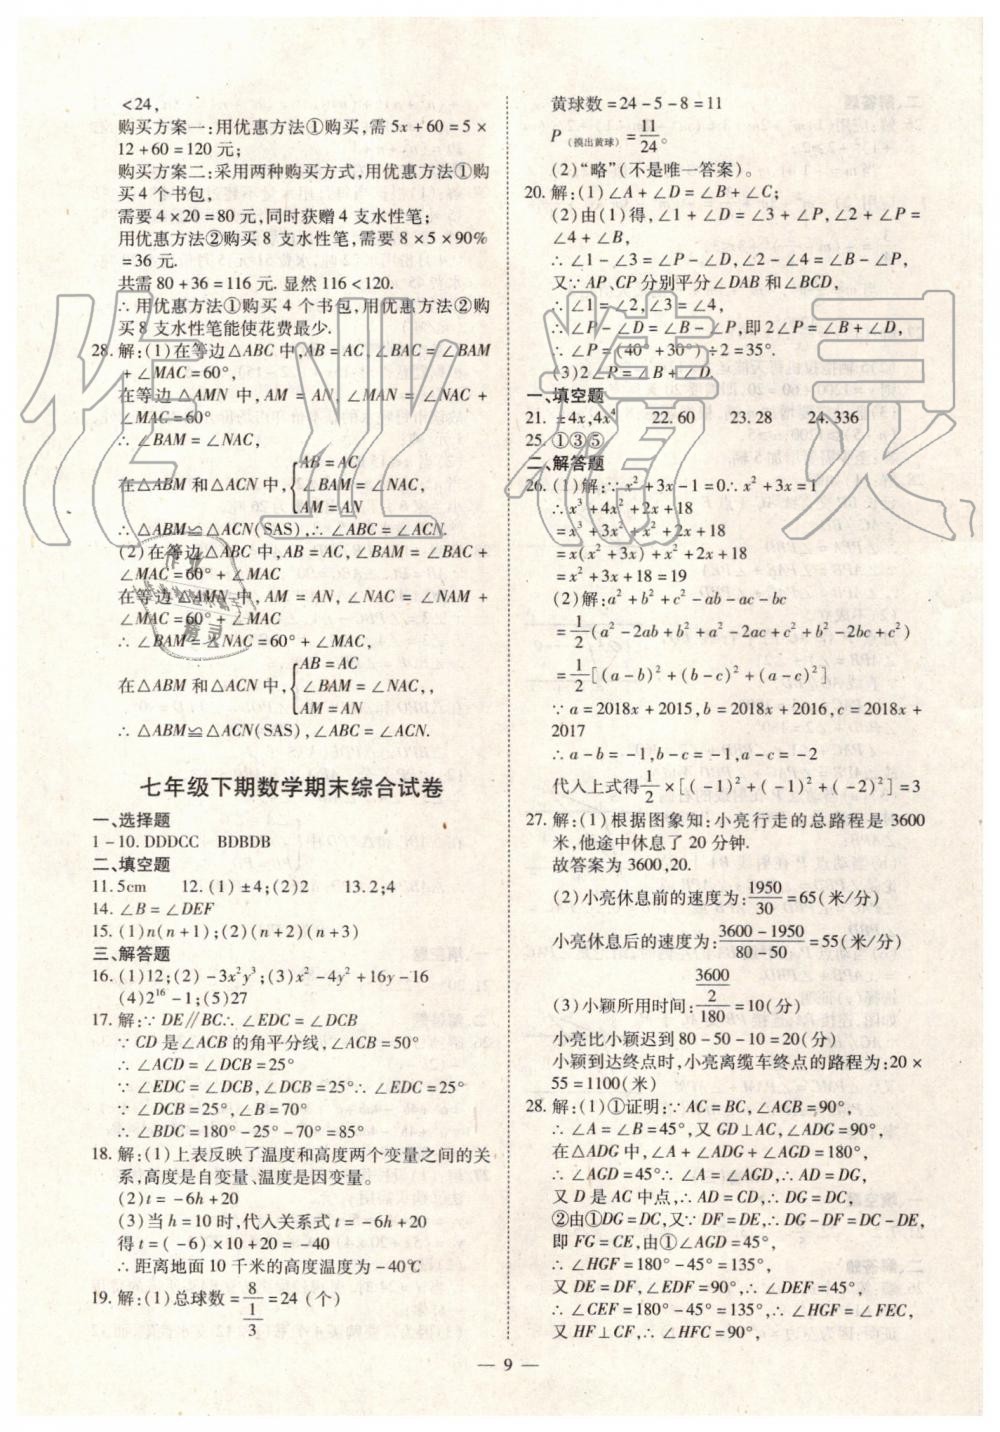 <24,
购买方案一:用优惠方法①购买,需5x+60=5×
12+60=120元;
购买方案二:采用两种购买方式,用优惠方法①购
买4个书包,
需要4×20=80元,同时获赠4支水性笔;
用优惠方法②购买8支水性笔,需要8×5×90%
=36元.
共需80+36=116元. 显然116<120.
∴用优惠方法①购买4个书包,用优惠方法②购
买8支水性笔能使花费最少.
28.解:(1)在等边△ABC中,AB=AC,∠BAC=∠BAM
+∠MAC=60°,
在等边△AMN中,AM=AN,∠MAN=∠NAC+
∠MAC=60°
∴∠BAM=∠NAC,
AB=AC
在△ABM和△ACN中,{∠BAM=∠NAC,
AM=AN
∴△ABM≌△ACN(SAS),∴∠ABC=∠ACN.
(2)在等边△ABC中,AB=AC,∠BAM=∠BAC+
∠MAC=60°+∠MAC
在等边△AMN中,AM=AN,∠NAC=∠NAM+
∠MAC=60°+∠MAC
∴∠BAM=∠NAC=60°+∠MAC,
AB=AC
在△ABM和△ACN中,{∠BAM=∠NAC,,
AM=AN
∴△ABM≌△ACN(SAS),∠ABC=∠ACN.
七年级下期数学期末综合试卷
一、选择题
1-10.DDDCC BDBDB
二、填空题
11.5cm 12.(1)±4;(2)2 13.2;4
14.∠B=∠DEF
15.(1)n(n+1);(2)(n+2)(n+3)
三、解答题
16.(1)12;(2)-3x²y³;(3)x²-4y²+16y-16
(4)2¹⁶-1;(5)27
17.解:∵DE∥BC∴∠EDC=∠DCB
∵CD是∠ACB的角平分线,∠ACB=50°
∴∠ACD=∠DCB=25°
∵∠EDC=∠DCB,∠DCB=25°∴∠EDC=25°
∵∠DCB=25°,∠B=70°
∴∠BDC=180°-25°-70°=85°
18.解:(1)上表反映了温度和高度两个变量之间的关
系,高度是自变量、温度是因变量。
(2)t=-6h+20
(3)当h=10时,代入关系式t=-6h+20
得t=(-6)×10+20=-40
∴距离地面10千米的高度温度为-40℃
19.解:(1)总球数=8/(1/3)=24(个)
黄球数=24-5-8=11
P(摸出黄球)=11/24。
(2)“略”(不是唯一答案)。
20.解:(1)∠A+∠D=∠B+∠C;
(2)由(1)得,∠1+∠D=∠3+∠P,∠2+∠P=
∠4+∠B,
∴∠1-∠3=∠P-∠D,∠2-∠4=∠B-∠P,
又∵AP、CP分别平分∠DAB和∠BCD,
∴∠1=∠2,∠3=∠4,
∴∠P-∠D=∠B-∠P,即2∠P=∠B+∠D,
∴∠P=(40°+30°)÷2=35°.
(3)2∠P=∠B+∠D.
一、填空题
21.±4x,4x⁴ 22.60 23.28 24.336
25.①③⑤
二、解答题
26.(1)解:∵x²+3x-1=0∴x²+3x=1
∴x³+4x²+2x+18
=x³+3x²+x²+2x+18
=x(x²+3x)+x²+2x+18
=x²+3x+18=19
(2)解:a²+b²+c²-ab-ac-bc
=1/2(a²-2ab+b²+a²-2ac+c²+b²-2bc+c²)
=1/2[(a-b)²+(b-c)²+(a-c)²]
∵a=2018x+2015,b=2018x+2016,c=2018x+
2017
∴a-b=-1,b-c=-1,a-c=-2
代入上式得1/2×[(-1)²+(-1)²+(-2)²]=3
27.解:(1)根据图象知:小亮行走的总路程是3600
米,他途中休息了20分钟.
故答案为3600,20.
(2)小亮休息前的速度为:1950/30=65(米/分)
小亮休息后的速度为:(3600-1950)/(80-50)=55(米/分)
(3)小颖所用时间:(3600/2)/180=10(分)
小亮比小颖迟到80-50-10=20(分)
小颖到达终点时,小亮离缆车终点的路程为:20×
55=1100(米)
28.解:(1)①证明:∵AC=BC,∠ACB=90°,
∴∠A=∠B=45°,又GD⊥AC,∠ADG=90°,
在△ADG中,∠A+∠ADG+∠AGD=180°,
∴∠AGD=45°∴∠A=∠AGD,∴AD=DG,
又D是AC中点,∴AD=CD,∴DG=DC,
②由①DG=DC,又∵DF=DE,∴DG-DF=DC-DE,
即FG=CE,由①∠AGD=45°,
∴∠HGF=180°-45°=135°,
又DE=DF,∠EDF=90°,∴∠DEF=45°,
∴∠CEF=180°-45°=135°,∴∠HGF=∠FEC,
又HF⊥CF,∴∠HFC=90°,
— 9 —
作业精灵